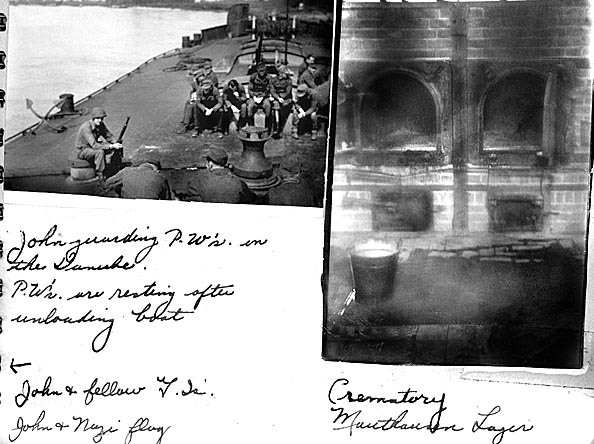 John guarding P.W's. on
the Danube.
P.W's. are resting after
unloading boat
←
John & fellow G.I's.
John & Nazi flag
Crematory
Mauthausen Lager